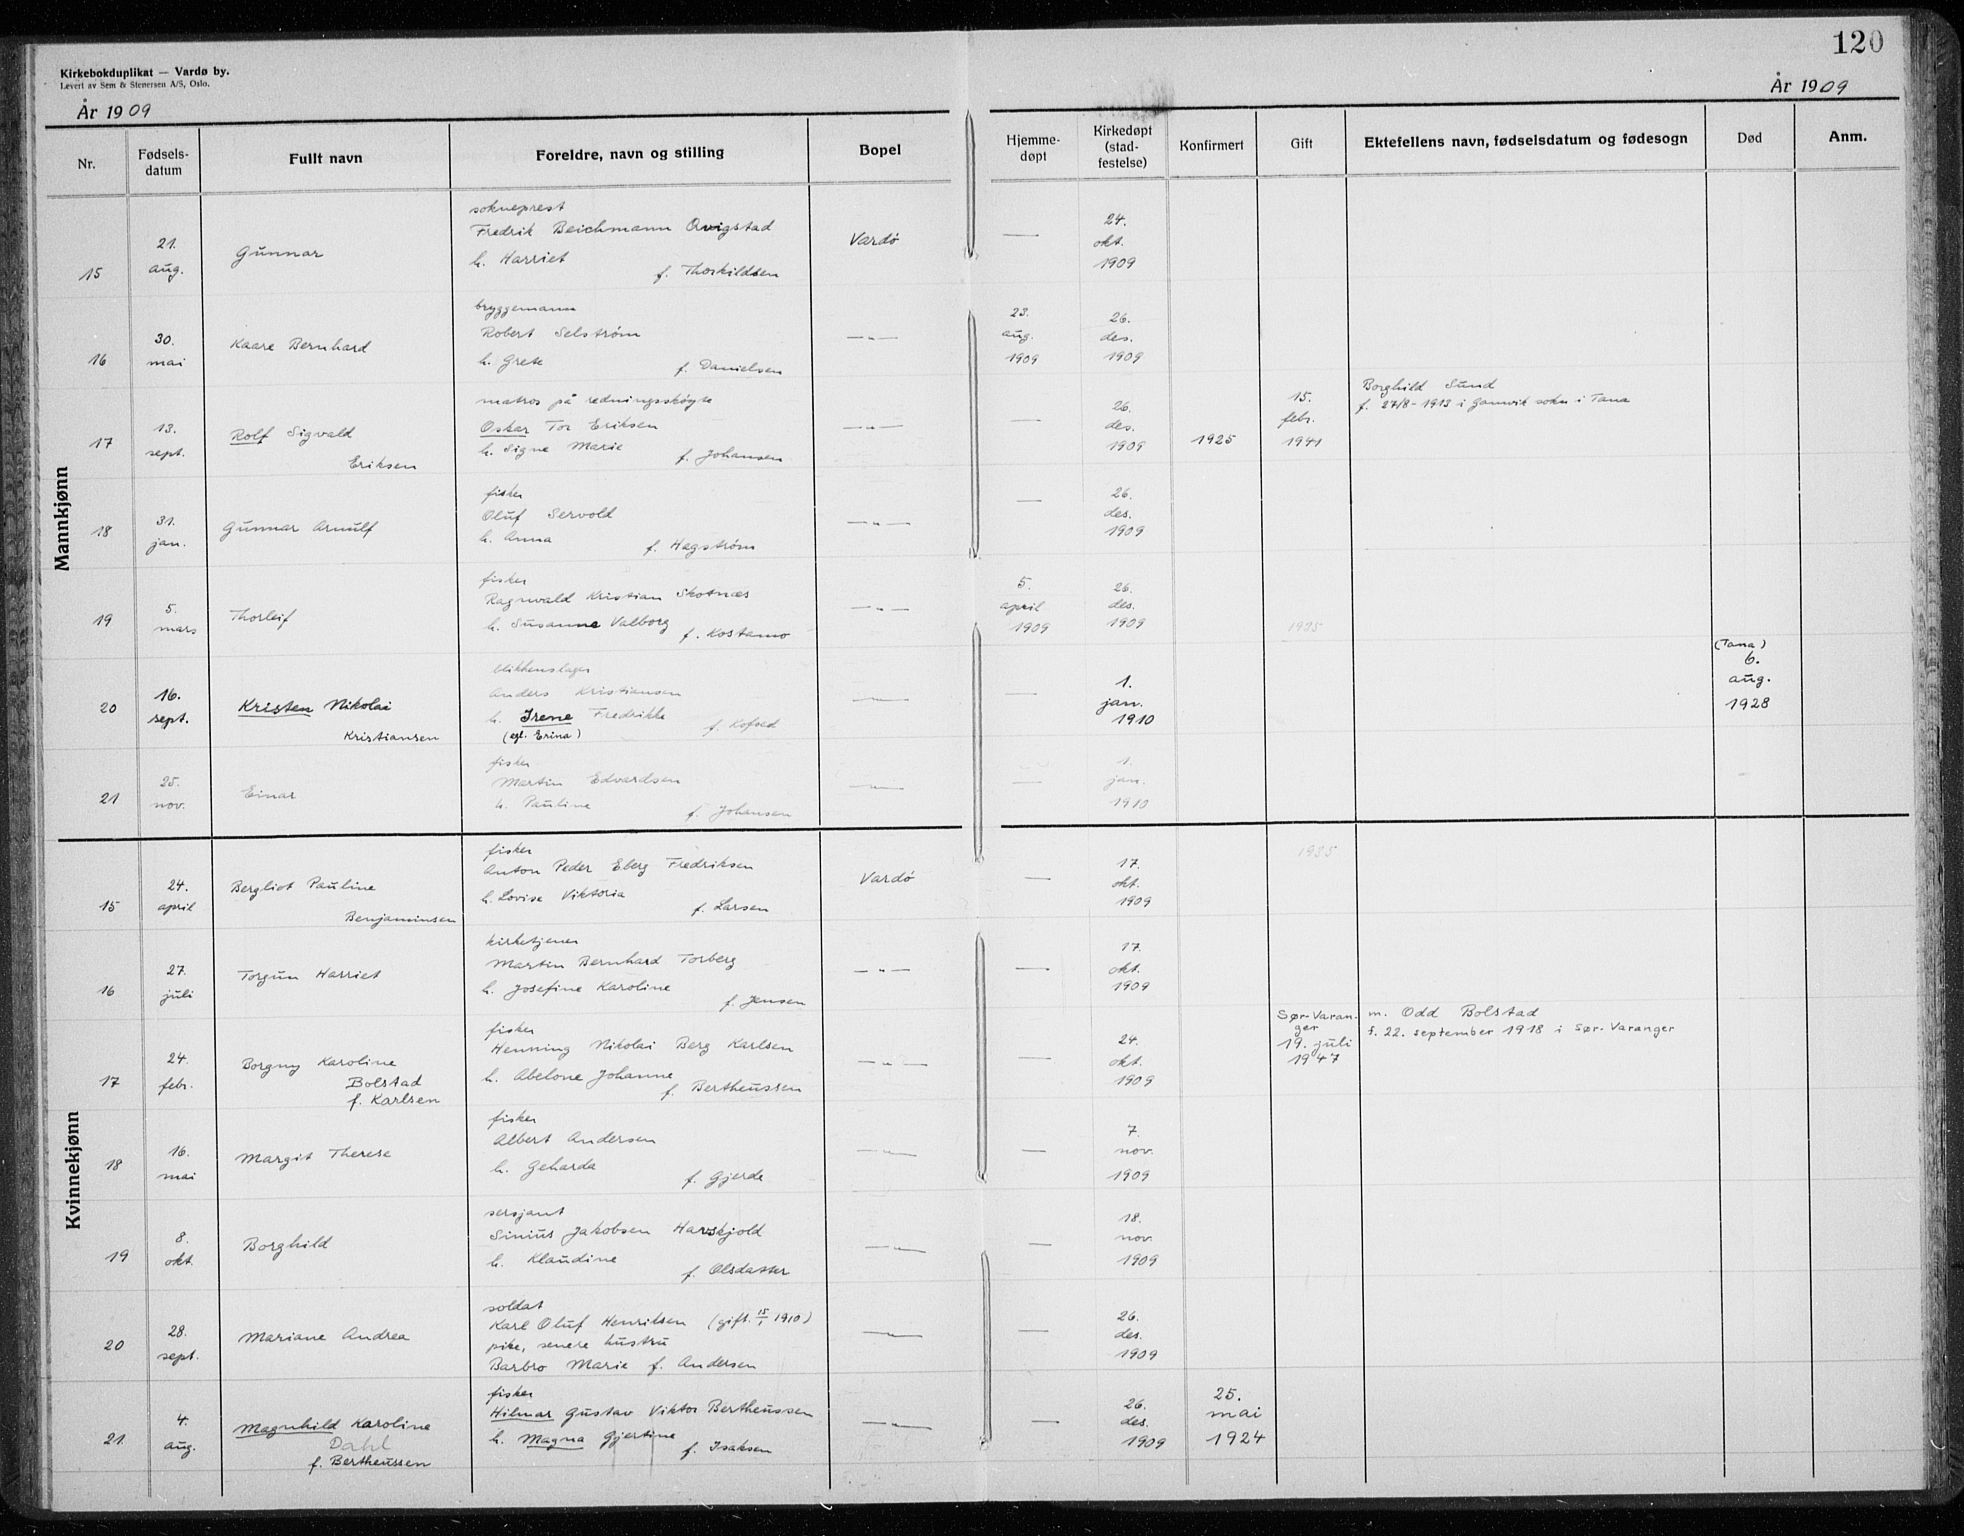 120
Kirkebokduplikat — Vardø by.
Levert av Sem & Stenersen A/S, Oslo.
År 1909
År 1909
Nr.
Fødsels-
datum
Fullt navn
Foreldre, navn og stilling
Bopel
Hjemme-
døpt
Kirkedøpt
(stad-
festelse)
Konfirmert
Gift
Ektefellens navn, fødselsdatum og fødesogn
Død
Anm.
Mannkjønn
15
21.
aug.
Gunnar
sokneprest
Fredrik Beichmann Qvigstad
h. Harriet
f. Thorkildsen
Vardø
—
24.
okt.
1909
16
30.
mai
Kaare Bernhard
bryggemann
Robert Selstrøm
h. Grete
f. Danielsen
— " —
23.
aug.
1909
26.
des.
1909
17
13.
sept.
Rolf Sigvald
Eriksen
matros på redningsskøyte
Oskar Tor Eriksen
h. Signe Marie
f. Johansen
— " —
—
26.
des.
1909
1925
15.
febr.
1941
Borghild Sund
f. 27/8-1913 i Gamvik sokn i Tana
18
31.
jan.
Gunnar Arnulf
fisker
Oluf Servold
h. Anna
f. Hagstrøm
— " —
—
26.
des.
1909
19
5.
mars
Thorleif
fisker
Ragnvald Kristian Skotnæs
h. Susanne Valborg
f. Kostamo
— " —
5.
april
1909
26.
des.
1909
1935
20
16.
sept.
Kristen Nikolai
Kristiansen
blikkenslager
Anders Kristiansen
h. Irene Fredrikke
(egl. Erina)
f. Kofoed
— " —
—
1.
jan.
1910
(Tana)
6.
aug.
1928
21
25.
nov.
Einar
fisker
Martin Edvardsen
h. Pauline
f. Johansen
— " —
—
1.
jan.
1910
Kvinnekjønn
15
24.
april
Bergliot Pauline
Benjaminsen
fisker
Anton Peder Eberg Fredriksen
h. Lovise Viktoria
f. Larsen
Vardø
—
17.
okt.
1909
1935
16
27.
juli
Torgun Harriet
kirketjener
Martin Bernhard Torberg
h. Josefine Karoline
f. Jensen
— " —
—
17.
okt.
1909
17
24
febr.
Borgny Karoline
Bolstad
f. Karlsen
fisker
Henning Nikolai Berg Karlsen
h. Abelone Johanne
f. Bertheussen
— " —
—
24.
okt.
1909
Sør-Varan-
ger
19. juli
1947
m. Odd Bolstad
f. 22. september 1918 i Sør-Varanger
18
16.
mai
Margit Therese
fisker
Albert Andersen
h. Geharda
f. Gjerde
— " —
—
7.
nov.
1909
19
8.
okt.
Borghild
sersjant
Sinius Jakobsen Harskjold
h. Klaudine
f. Olsdatter
— " —
—
18.
nov.
1909
20
28.
sept.
Mariane Andrea
soldat
Karl Oluf Henriksen (gift. 15/1 1910)
pike, senere hustru
Barbro Marie f. Andersen
— " —
—
26.
des.
1909
21.
4.
aug.
Magnhild Karoline
Dahl
f. Bertheussen
fisker
Hilmar Gustav Viktor Bertheussen
h. Magna Gjertine
f. Isaksen
— " —
—
26.
des.
1909
25.
mai
1924